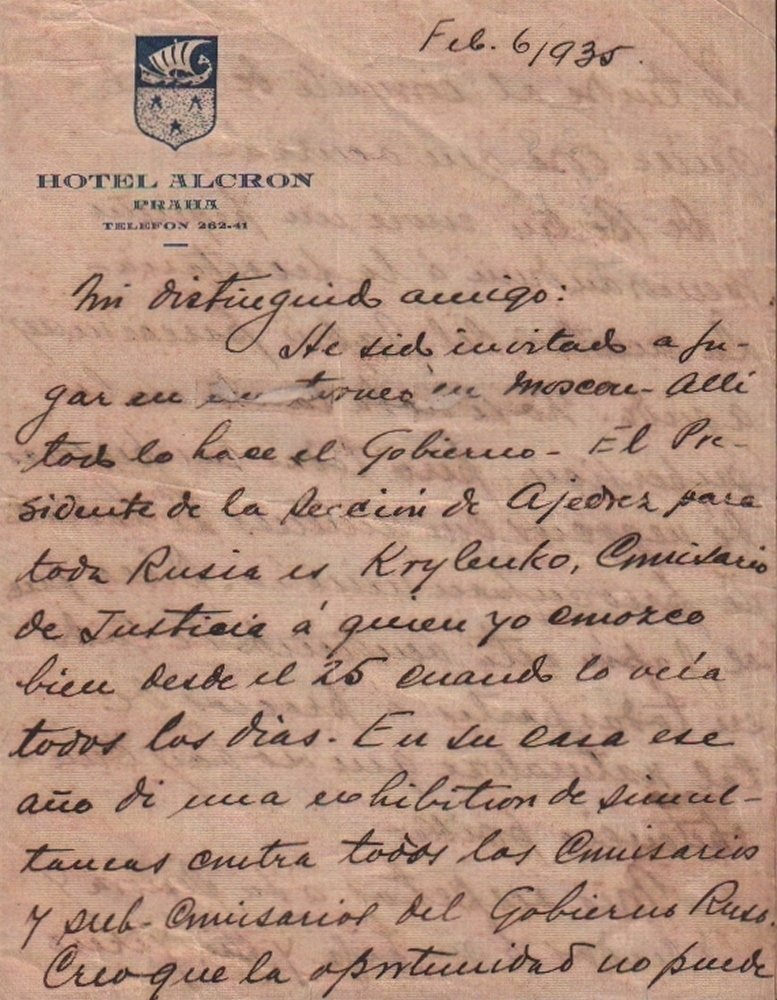 Feb. 6/935.
HOTEL ALCRON
PRAHA
TELEFON 262-41
Mi distinguido amigo:
He sido invitado a ju-
gar en un torneo en Moscou - Allí
todo lo hace el Gobierno - El Pre-
sidente de la Sección de Ajedrez para
toda Rusia es Krylenko, Comisario
de Justicia á quien yo conozco
bien desde el 25 cuando lo veía
todos los dias. En su casa ese
año di una exhibition de simul-
taneas contra todos los Comisarios
y sub-Comisarios del Gobierno Ruso.
Creo que la oportunidad no puede